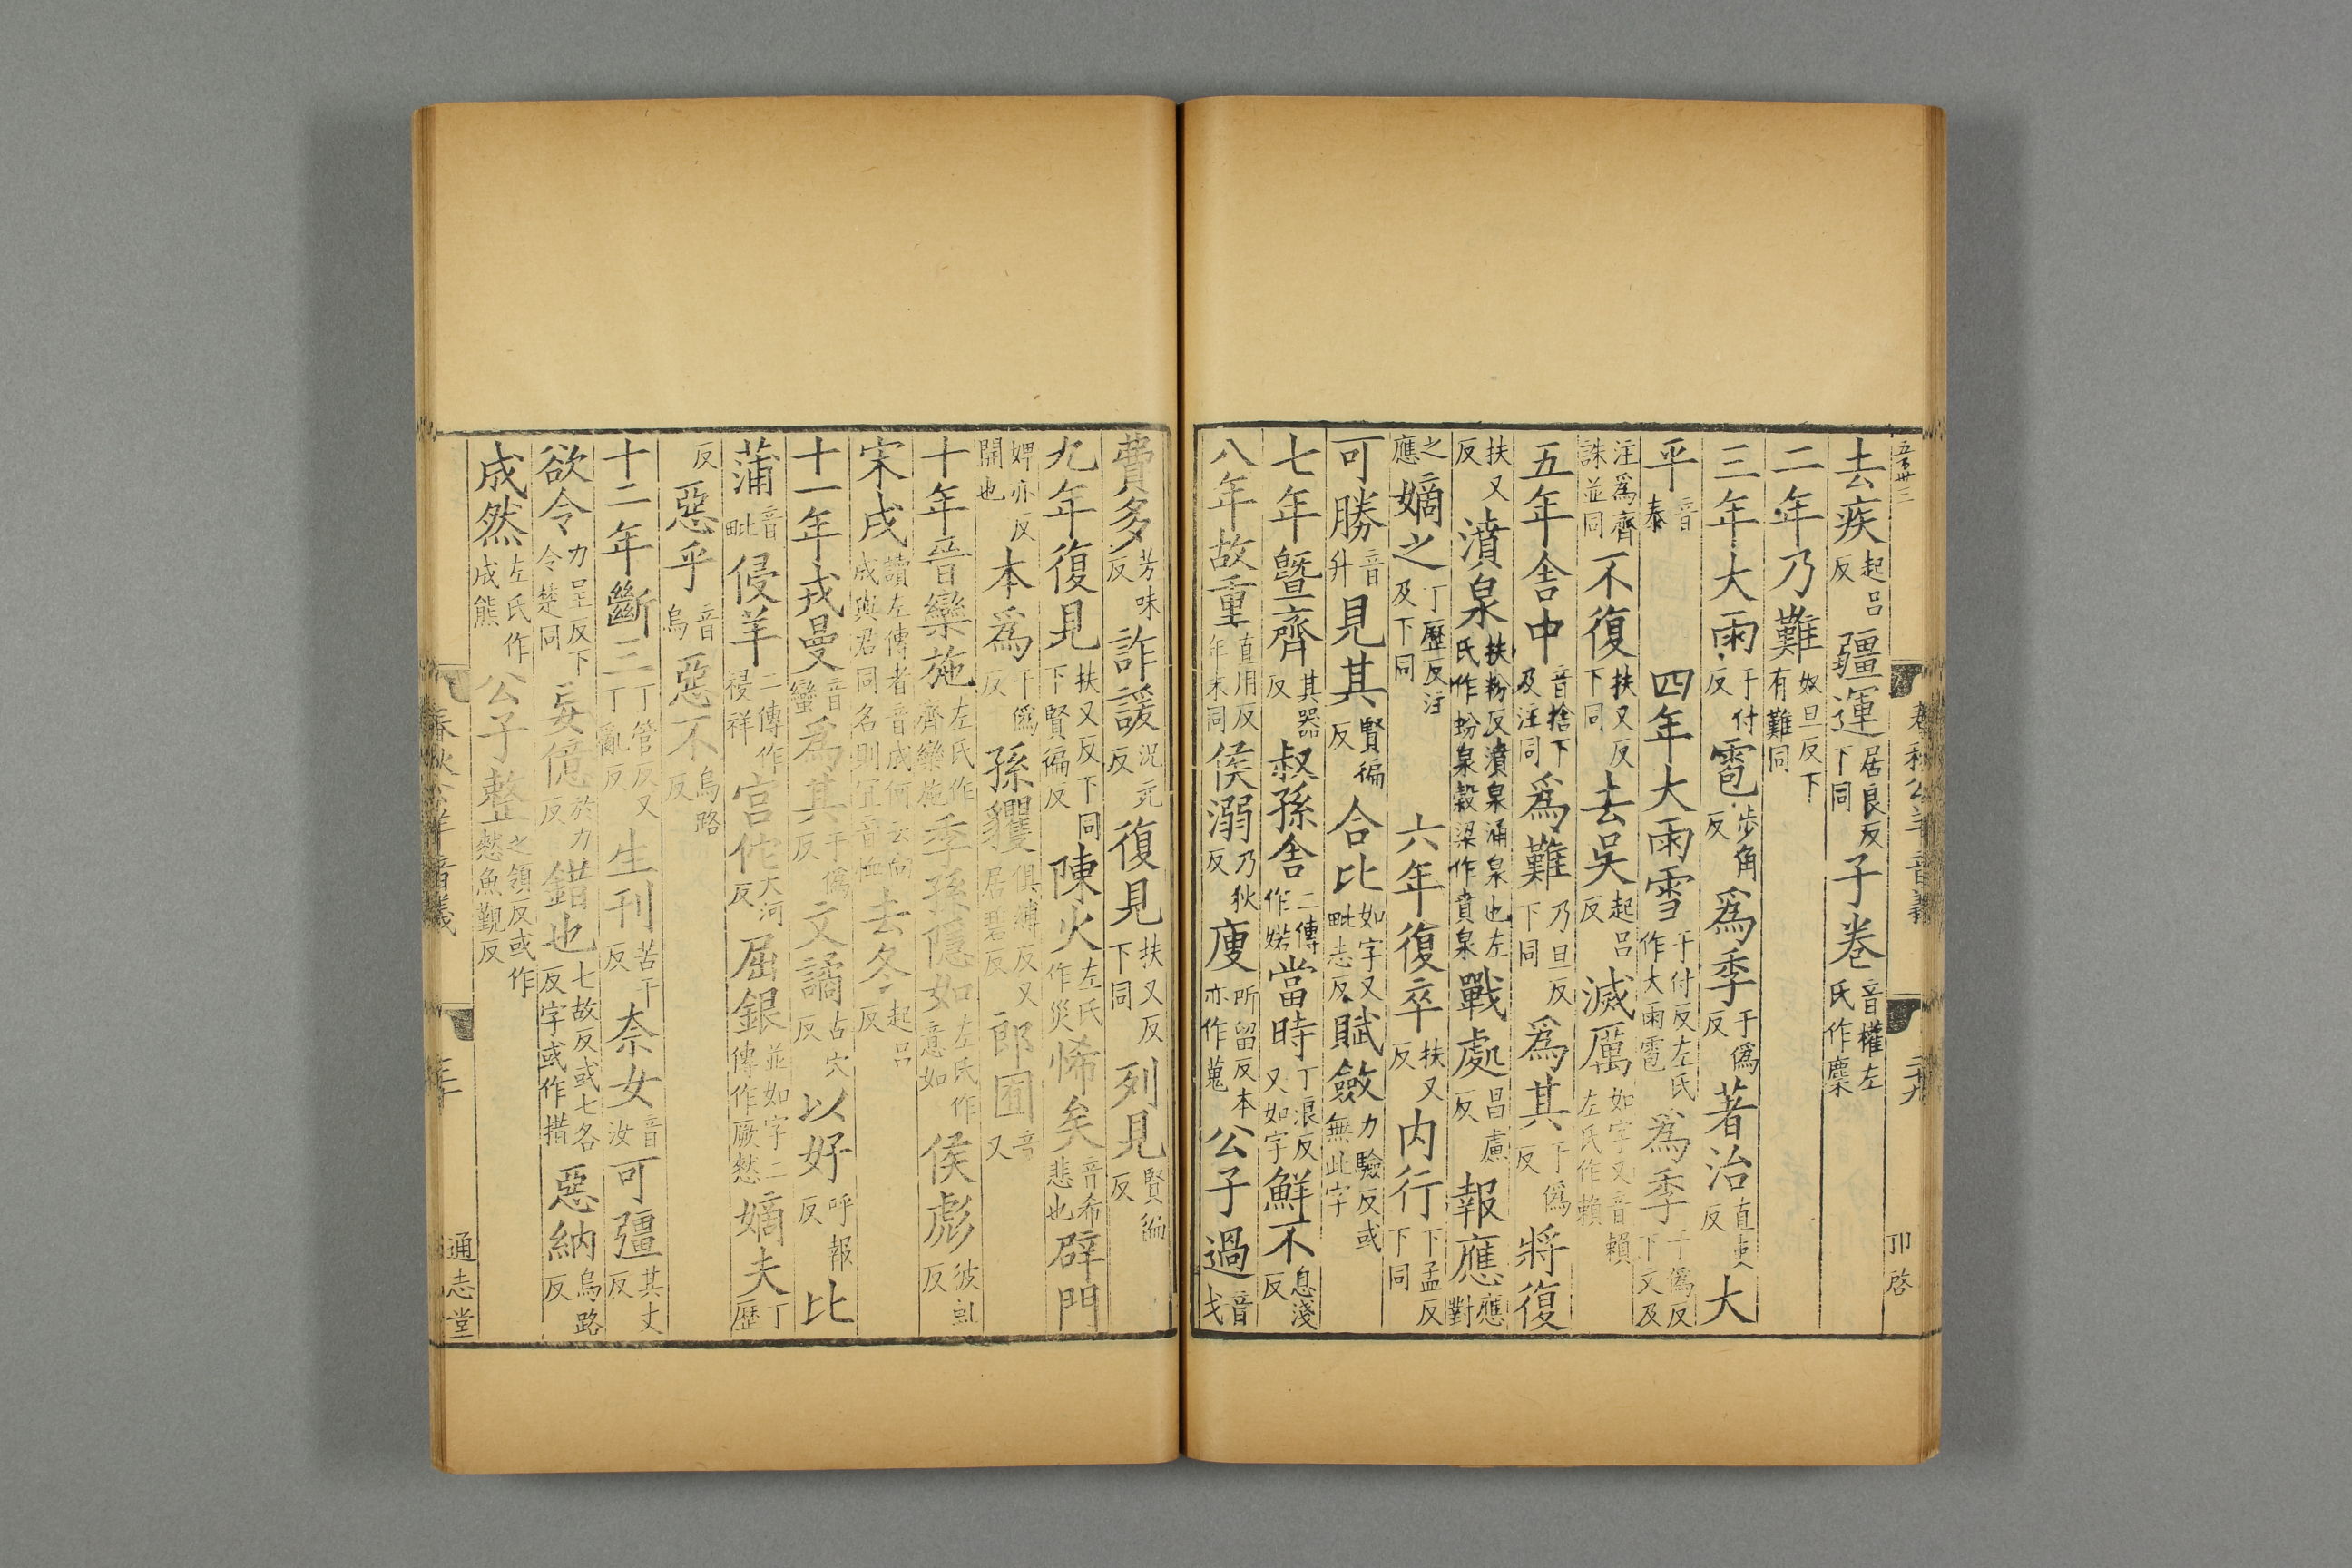 五百卅三
春秋公羊音義 二九 卬啓
去疾起呂反疆運居良反下同子卷音權左氏作麇
二年乃難奴旦反下有難同
三年大雨于付反雹步角反爲季于僞反著治直吏反大
平音泰四年大雨雪于付反左氏作大雨雹爲季于僞反下文及
注爲齊誅並同不復扶又反下同去吳起呂反滅厲如字又音賴左氏作賴
五年舍中音捨下及注同爲難乃旦反下同爲其于僞反將復
扶又反濆泉扶粉反濆泉涌泉也左氏作蚡泉穀梁作賁泉戰處昌慮反報應應對
之應嫡之丁歷反注及下同六年復卒扶又反内行下孟反下同
可勝音升見其賢徧反合比如字又毗志反賦斂力驗反或無此字
七年曁齊其器反叔孫舍二傳作婼當時丁浪反又如字鮮不息淺反
八年故重直用反年末同侯溺乃狄反廋所留反本亦作蒐公子過音戈
費多芳味反詐諼況元反復見扶又反下同列見賢徧反
九年復見扶又反下同下賢徧反陳火左氏作災悕矣音希悲也辟門
婢亦反開也本爲于僞反孫貜俱縛反又居碧反郎囿音又
十年晉欒施左氏作齊欒施季孫隱如左氏作意如侯彪彼虯反
宋戌讀左傳者音成何云向戌與君同名則宜音恤去冬起呂反
十一年戎曼音蠻爲其于僞反文譎古穴反以好呼報反比
蒲音毗侵羊二傳作祲祥宫佗大河反屈銀並如字二傳作厥憖嫡夫丁歷
反惡乎音烏惡不烏路反
十二年斷三丁管反又丁亂反生刊苦干反奈女音汝可彊其丈反
欲令力呈反下令楚同妄億於力反錯也七故反或七各反字或作措惡納烏路反
成然左氏作成熊公子整之領反或作憖魚覲反
春秋公羊音義 三十 通志堂